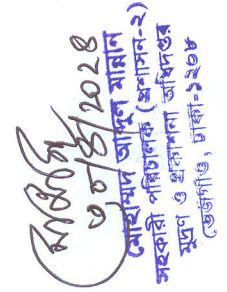 ৩০/৪/২০২৪
মোহাম্মদ আব্দুল মান্নান
সহকারী পরিচালক (প্রশাসন-২)
মুদ্রণ ও প্রকাশনা অধিদপ্তর
তেজগাঁও, ঢাকা-১২০৮